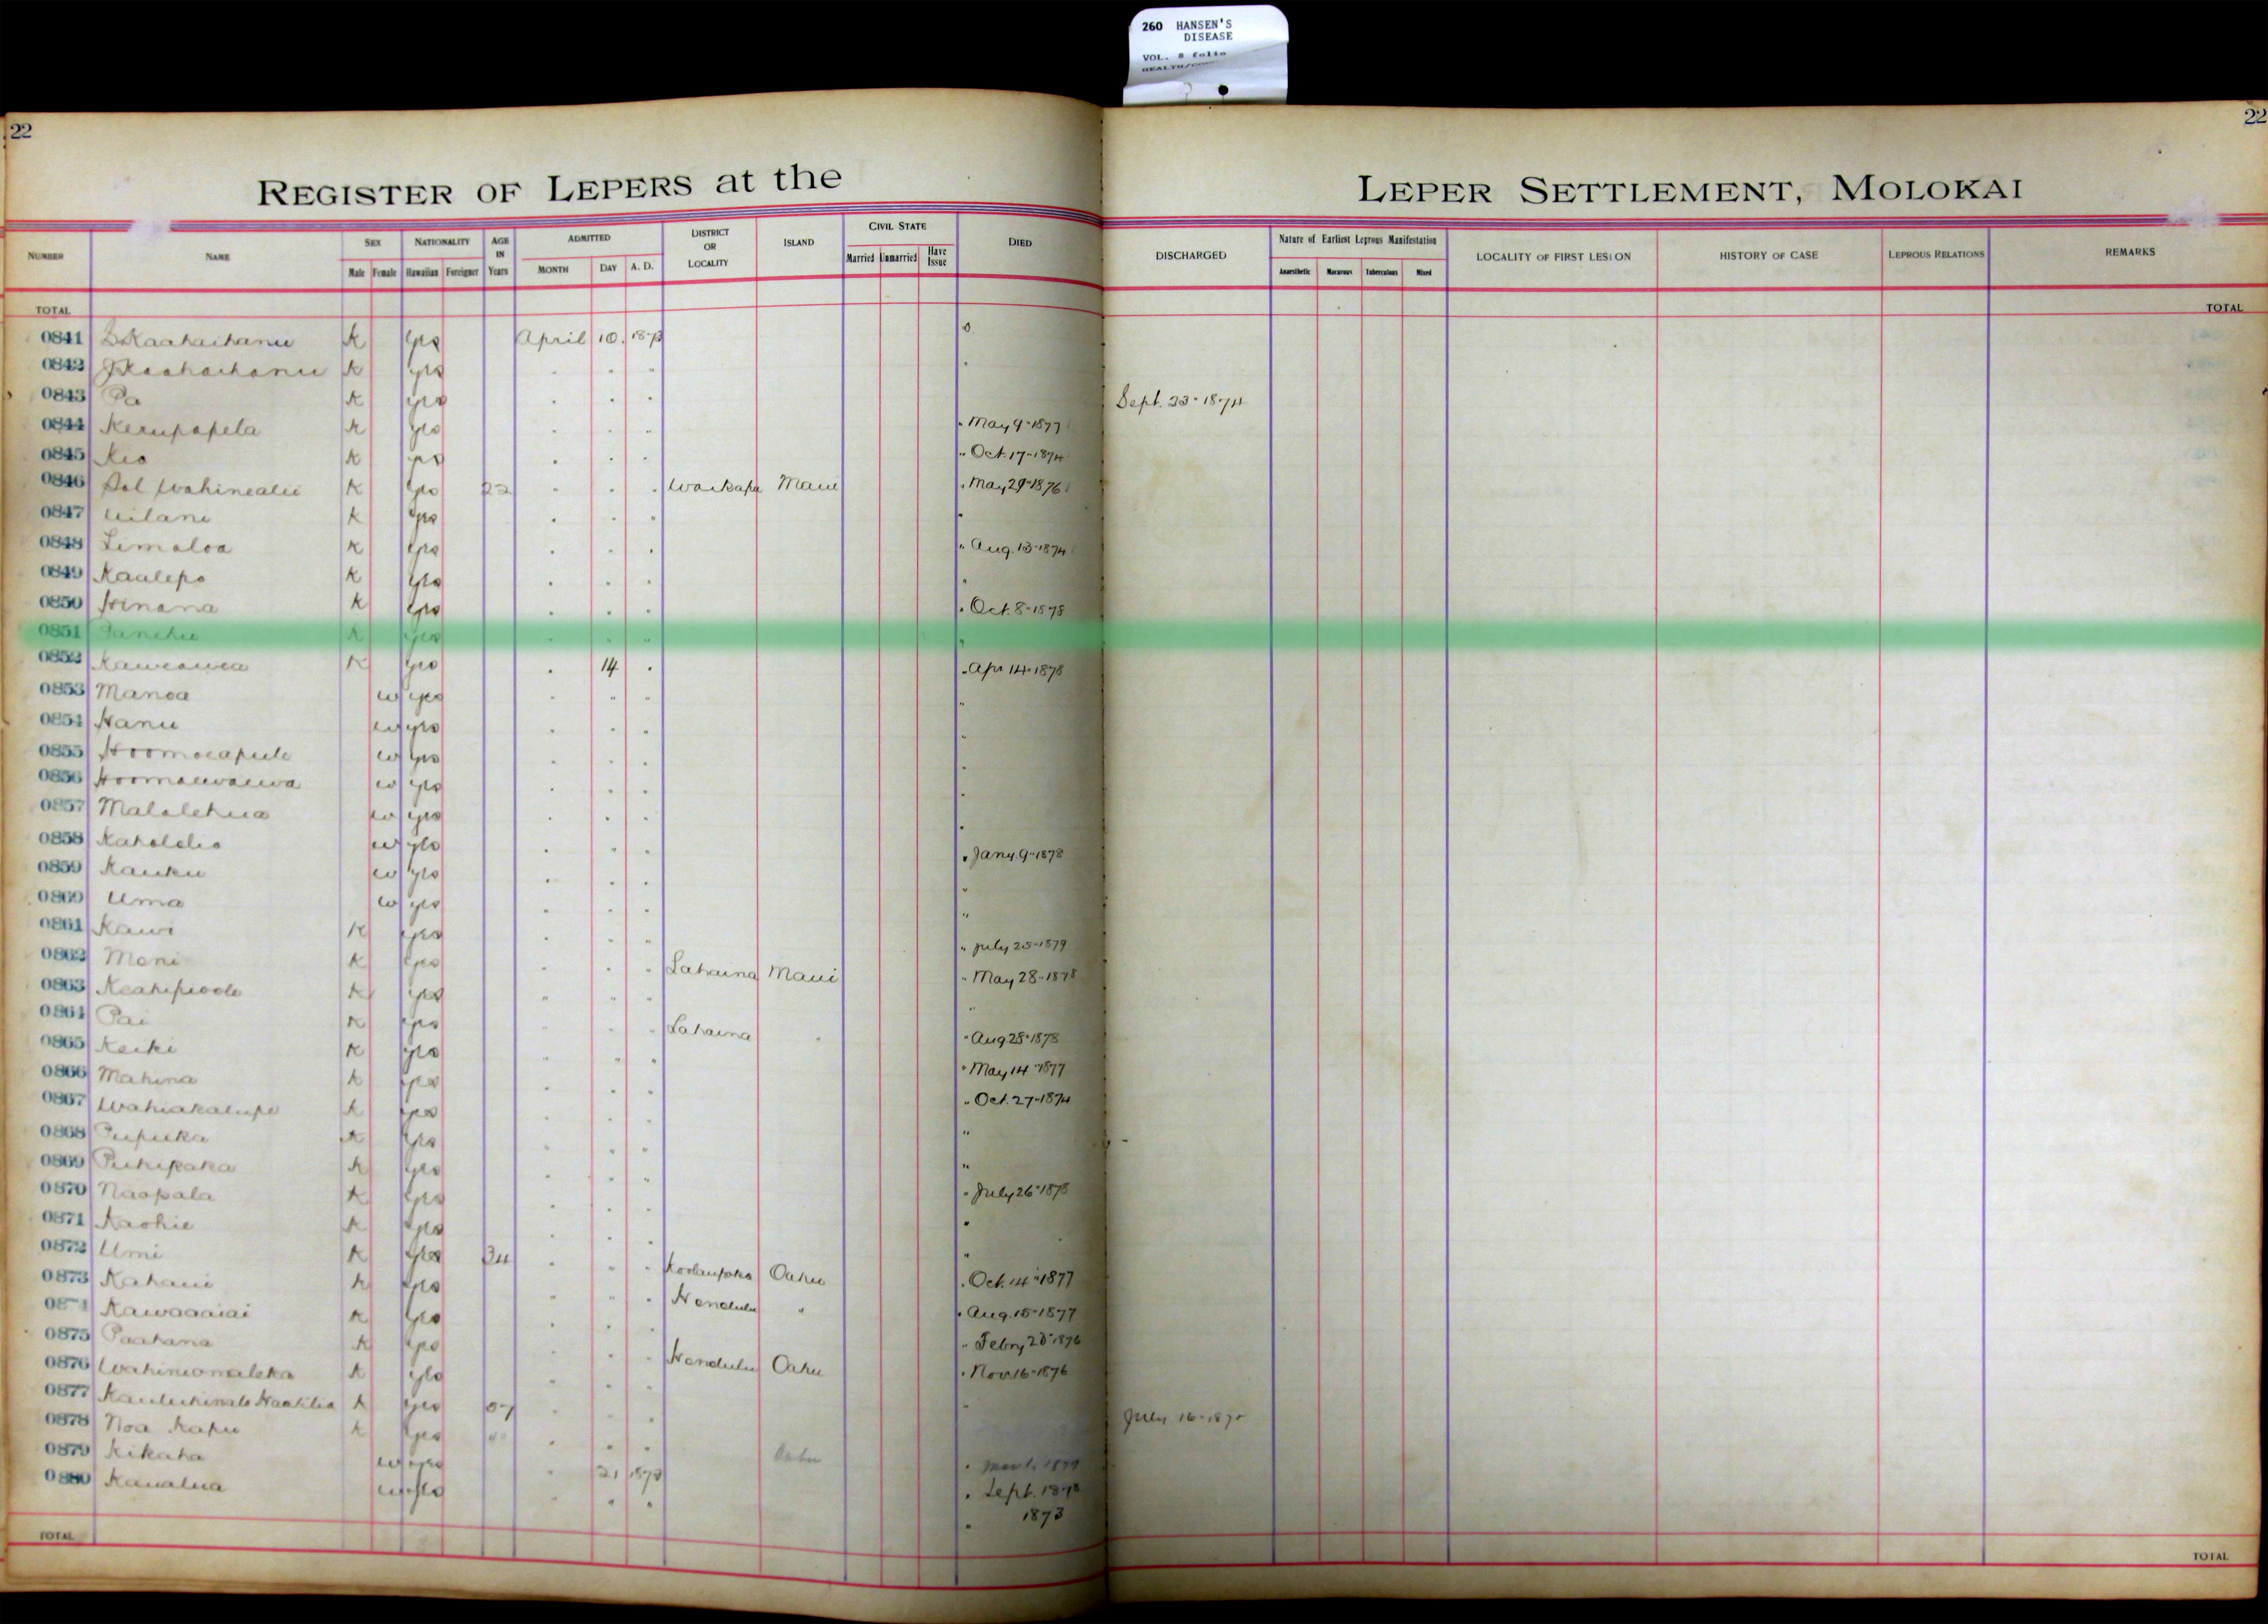 260 HANSEN'S
DISEASE
VOL. 8 folio
22
22
REGISTER OF LEPERS at the LEPER SETTLEMENT, MOLOKAI
NUMBER NAME SEX NATIONALITY AGE IN Years ADMITTED DISTRICT OR LOCALITY ISLAND CIVIL STATE DIED DISCHARGED Nature of Earliest Leprous Manifestation LOCALITY OF FIRST LESION HISTORY OF CASE LEPROUS RELATIONS REMARKS
Male Female Hawaiian Foreigner MONTH DAY A. D. Married Unmarried Have Issue Anaesthetic Macurous Tuberculous Mixed
TOTAL TOTAL
0841 K yes April 10. 1873
0842 K yes " " "
0843 Pa K yes " " " Sept. 23-1874
0844 K yes " " " " May 9-1877
0845 K yes " " " " Oct. 17-1874
0846 Wahinealii K yes 22 " " " Waikapu Maui " May 29-1876
0847 Uilani K yes " " " "
0848 Limaloa K yes " " " " Aug. 13-1874
0849 Kaulepo K yes " " " "
0850 Hinana K yes " " " " Oct. 8-1878
0851 K yes " " " "
0852 Kaweawea K yes " 14 " " Apr 14-1878
0853 Manoa w yes " " " "
0854 Hanu w yes " " " "
0855 w yes " " " "
0856 Hoomauwauwa w yes " " " "
0857 Malalehua w yes " " " "
0858 Kahalelio w yes " " " " Jany. 9-1878
0859 Kauku w yes " " " "
0860 Uma w yes " " " "
0861 Kawi K yes " " " " July 25-1879
0862 Mani K yes " " " Lahaina Maui " May 28-1878
0863 K yes " " " "
0864 Pai K yes " " " Lahaina " " Aug 25-1878
0865 Keiki K yes " " " " May 14-1877
0866 Mahina K yes " " " " Oct. 27-1874
0867 Wahiakalupe K yes " " " "
0868 Pupuka K yes " " " "
0869 Puhipaka K yes " " " " July 26-1878
0870 Naopala K yes " " " "
0871 Kaohie K yes " " " "
0872 Umi K yes 34 " " " Koolaupoko Oahu " Oct. 14-1877
0873 Kahaui K yes " " " Honolulu " " Aug. 15-1877
0874 Kawaaaiai K yes " " " " Febry 28-1876
0875 Paahana K yes " " " Honolulu Oahu " Nov. 16-1876
0876 K yes " " " "
0877 K yes " " " July 16-187
0878 Noa Kapu K yes " " " Oahu " 1879
0879 Kikaha w yes " 21 1873 " Sept. 1878
0880 Kanalua w yes " " " " 1873
TOTAL TOTAL